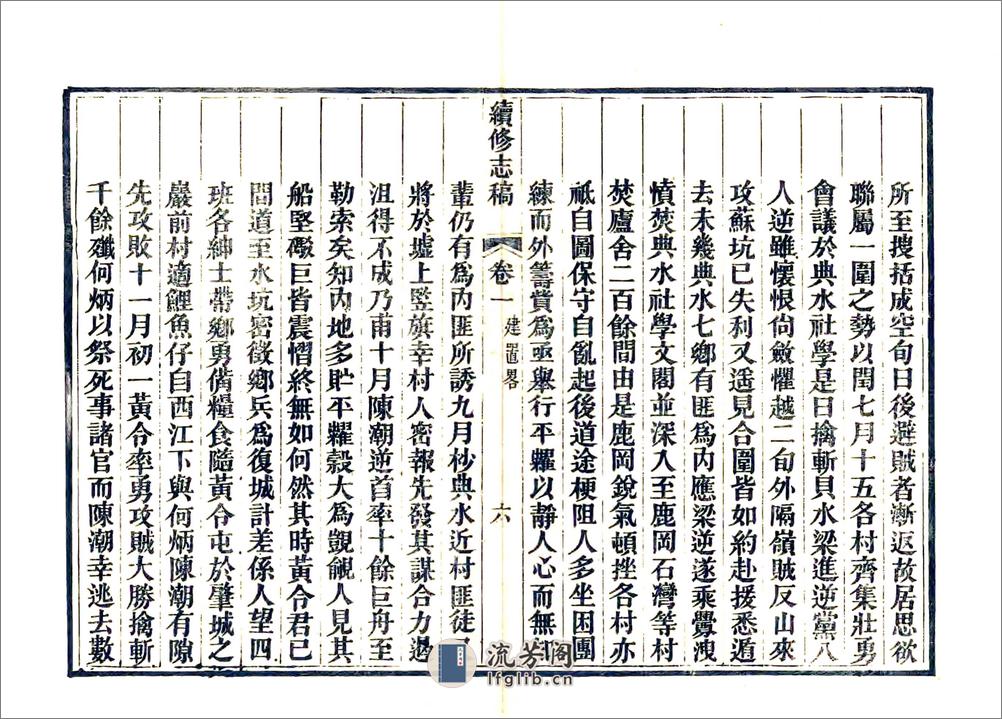 所至搜括成空旬日後避賊者漸返故居思欲
聯屬一圍之勢以閏七月十五各村齊集壯勇
會議於典水社學是日擒斬貝水梁進逆黨八
人逆雖懷恨尙斂懼越二旬外隔嶺賊反山來
攻蘇坑已失利又遥見合圍皆如約赴援悉遁
去未幾典水七鄉有匪爲內應梁逆遂乘釁洩
憤焚典水社學文閣並深入至鹿岡石灣等村
焚廬舍二百餘間由是鹿岡銳氣頓挫各村亦
祇自圖保守自亂起後道途梗阻人多坐困團
練而外籌賞爲亟舉行平糶以靜人心而無
續修志稿 卷一 建置畧 六
輩仍有爲內匪所誘九月杪典水近村匪徒
將於墟上竪旗幸村人密報先發其謀合力遏
沮得不成乃甫十月陳潮逆首率十餘巨舟至
勒索矣知內地多貯平糶穀大爲覬覦人見其
船堅礮巨皆震慴終無如何然其時黃令君已
間道至水坑密徵鄉兵爲復城計差係人望四
班各紳士帶鄉勇備糧食隨黃令屯於肇城之
巖前村適鯉魚仔自西江下與何炳陳潮有隙
先攻敗十一月初一黃令率勇攻賊大勝擒斬
千餘殲何炳以祭死事諸官而陳潮幸逃去數
流芳阁
lfglib.cn